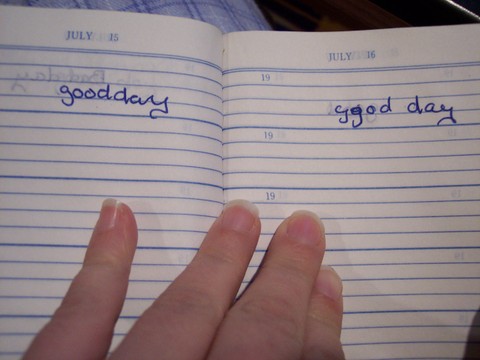 JULY 15
goodday
JULY 16
19
ggod day
19
19